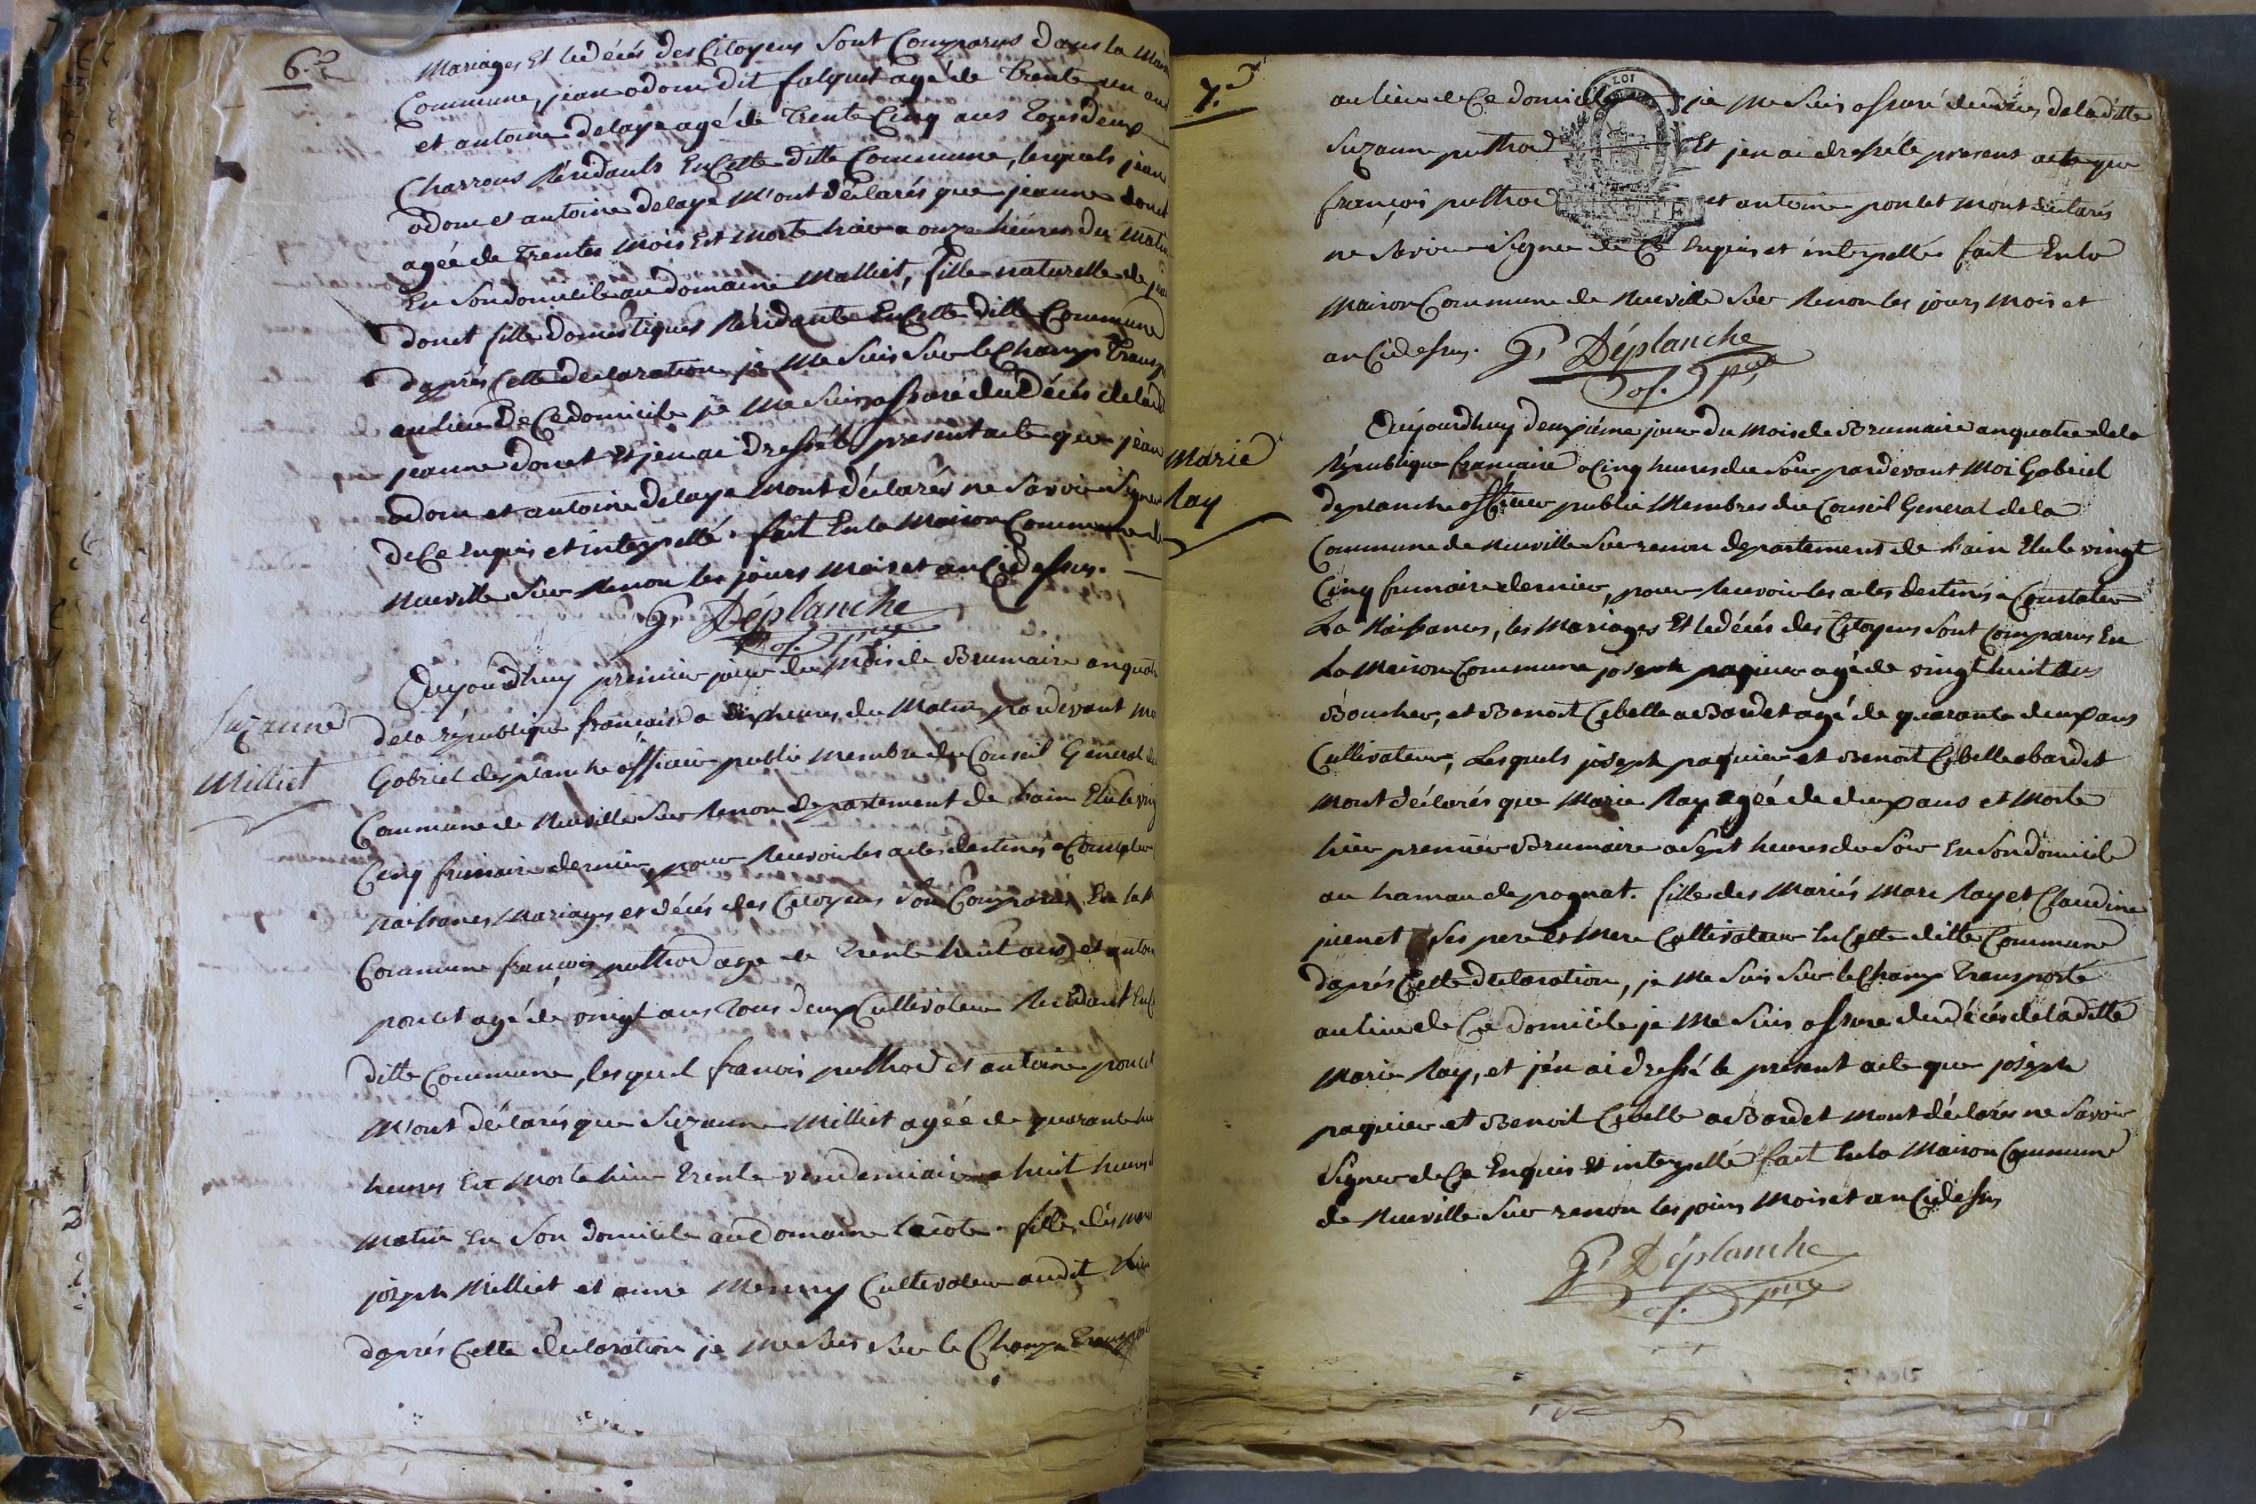 6.e
Mariages Et les décés des Citoyens sont Comparus dans la Mai
Commune, jean odom dit falquet agé de trente un an
et antoine delaye agé de trente Cinq ans tous deux
Charrons Résidants En Cette ditte Commune, lesquels jean
odom et antoine delaye M'ont déclarés que jeanne donet
agée de trentes Mois Est Morte hier a onze heures du Matin
En son domicile au domaine Malliet, fille naturelle de
donet fille domestiques Résidante En Cette ditte Commune
daprés Cette déclaration je Me suis sur le Champ transp
au lieu De Ce domicile je Me suis assuré du Décés de lad
jeanne donet Et jen ai Dressé le present acte que jean
odom et antoine delaye Mont déclarés ne savoir signer
de Ce Enquis et interpellé. fait En la Maison Commune de
Neuville sur Renon les jours Mois et an Cidessus.
G. Déplanche
of. pce
Suzanne
Milliet
Aujourdhuy premier jour du Mois de Brumaire an quatr
de la république française a dix heures du Matin pardevant mo
Gabriel deplanche officier public Membre du Conseil General de
Commune de Neuville sur Renon departement de l'ain Elu le ving
Cinq frimaire dernier, pour Recevoir les actes destinés a Constater
naissances Mariages et décés des Citoyens sont Comparus En la M
Commune françois puthod agé de trente huit ans et antoi
poncet agé de vingt ans tous deux Cultivateur Résidant En C
ditte Commune, lesquel francois puthod et antoine poncet
M'ont déclarés que Suzanne Milliet agée de quarante hui
heures Est Morte hier trente vendemiaire a huit heures d
Matin En son domicile au domaine lacote. fille des Mari
joseph Milliet et anne Menny Cultivateur audit lieu
daprés Cette déclaration je Me suis sur le Champ transporté
7.e
au lieu de Ce domicile je Me suis assuré du décés de la ditte
Suzanne puthod Et jen ai dressé le present acte que
LOI
françois puthod et antoine poncet Mont déclarés
ne savoir signer de Ce Enquis et interpellé. fait En la
Maison Commune de Neuville sur Renon les jours Mois et
an Cidessus. G. Déplanche
of. pce
Marie
Ray
Aujourdhuy deuxiéme jour du Mois de Brumaire an quatre de la
République francaise a Cinq heures du soir pardevant Moi Gabriel
deplanche officier public Membres du Conseil General de la
Commune de Neuville sur renon departement de l'ain Elu le vingt
Cinq frimaire dernier, pour Recevoir les actes destinés a Constater
La Naissances, les Mariages Et les décés des Citoyens sont Comparus En
La Maison Commune joseph paquier agé de vingt huit ans
Boucher, et Benoit Cibelle a Bardet agé de quarante deux ans
Cultivateur, Lesquels joseph paquier et Benoit Cibelle abardet
Mont déclarés que Marie Ray agée de deux ans et Morte
hier premier Brumaire a sept heures du soir En son domicile
au hamau de pognat. fille des Mariés Marc Ray et Claudine
juenet ses pere et Mere Cultivateur En Cette ditte Commune
daprés Cette déclaration, je Me suis sur le Champ transporté
au lieu de Ce domicile je Me suis assuré du décés de la ditte
Marie Ray, et jén ai dressé le present acte que joseph
paquier et Benoit Cibelle a Bardet Mont déclarés ne savoir
signer de Ce Enquis Et interpellé fait En la Maison Commune
de Neuville sur renon les jours Mois et an Cidessus
G. Déplanche
of. pce